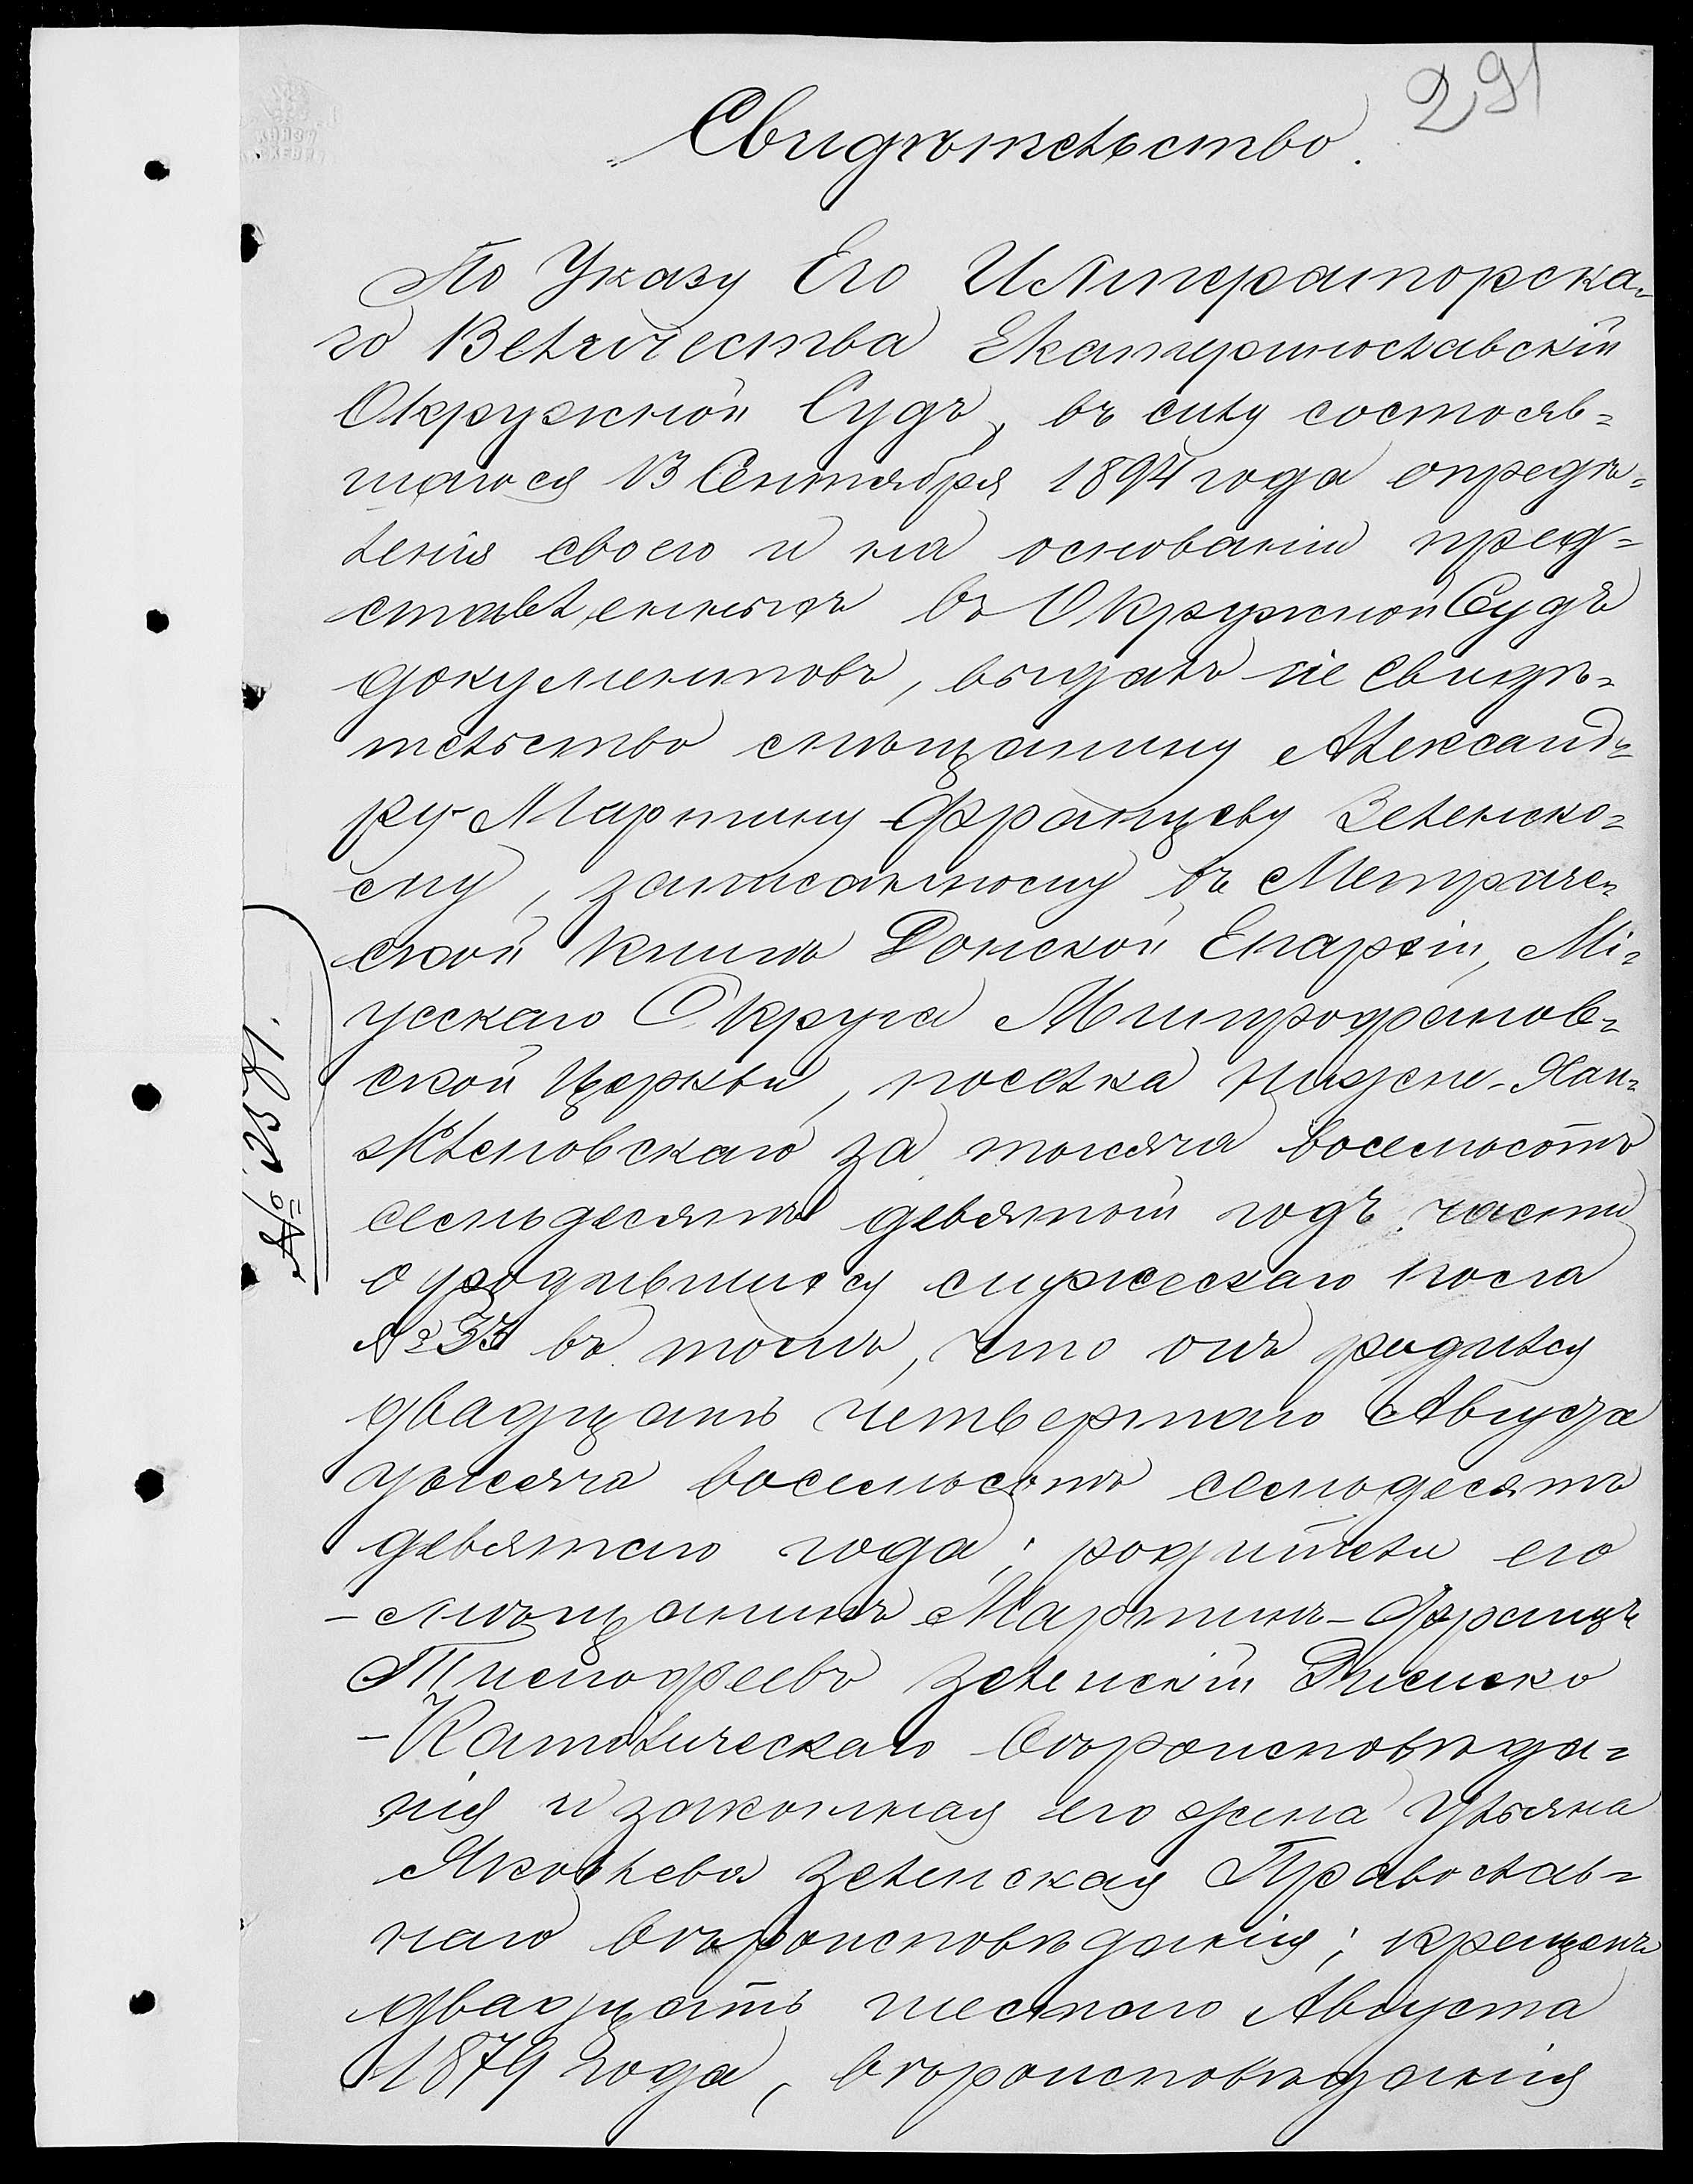 291
Свидѣтельство.
По Указу Его Императорска-
го Величества Екатеринославскій
Окружной Судъ, въ силу состояв=
шагося 13 Сентября 1894 года опредѣ=
ленія своего и на основаніи пред=
ставленныхъ въ Окружной Судъ
документовъ, выдалъ сіе свидѣ=
тельство мѣщанину Александ=
ру Мартину-Францеву Зеленско=
му, записанному въ Метриче=
ской книгѣ Донской Епархіи, Мі=
усскаго Округа Митрофанов=
ской Церкви, поселка Нижне-Хан=
женовскаго за тысяча восемьсотъ
семьдесятъ девятый годъ части
о родившихся мужескаго пола
№ 33 въ томъ, что онъ родился
двадцать четвертаго Августа
тысяча восемьсотъ семьдесятъ
девятаго года; родители его
- мѣщанинъ Мартинъ-Францъ
Тимофеевъ Зеленскій Римско
-Католическаго вѣроисповѣда=
нія и законная его жена Ульяна
Яковлева Зеленская Православ=
наго вѣроисповѣданія; крещенъ
двадцать шестаго Августа
1879 года, вѣроисповѣданія
№ 2581.